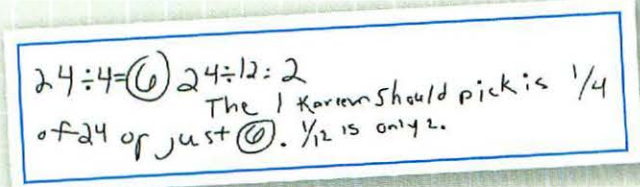 24÷4=6 24÷12=2
The 1 Kareem should pick is 1/4
of 24 or just 6. 1/12 is only 2.